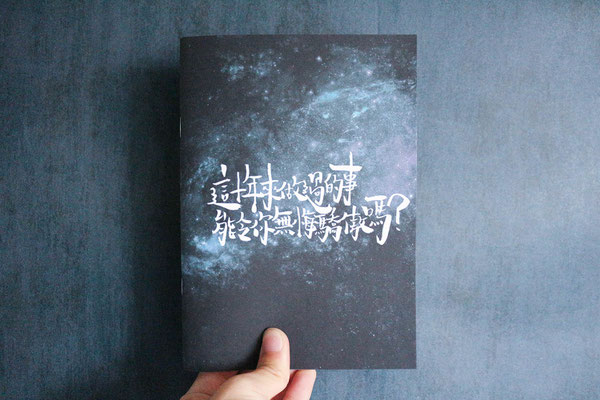 這十年來做過的事
能令你無悔驕傲嗎?